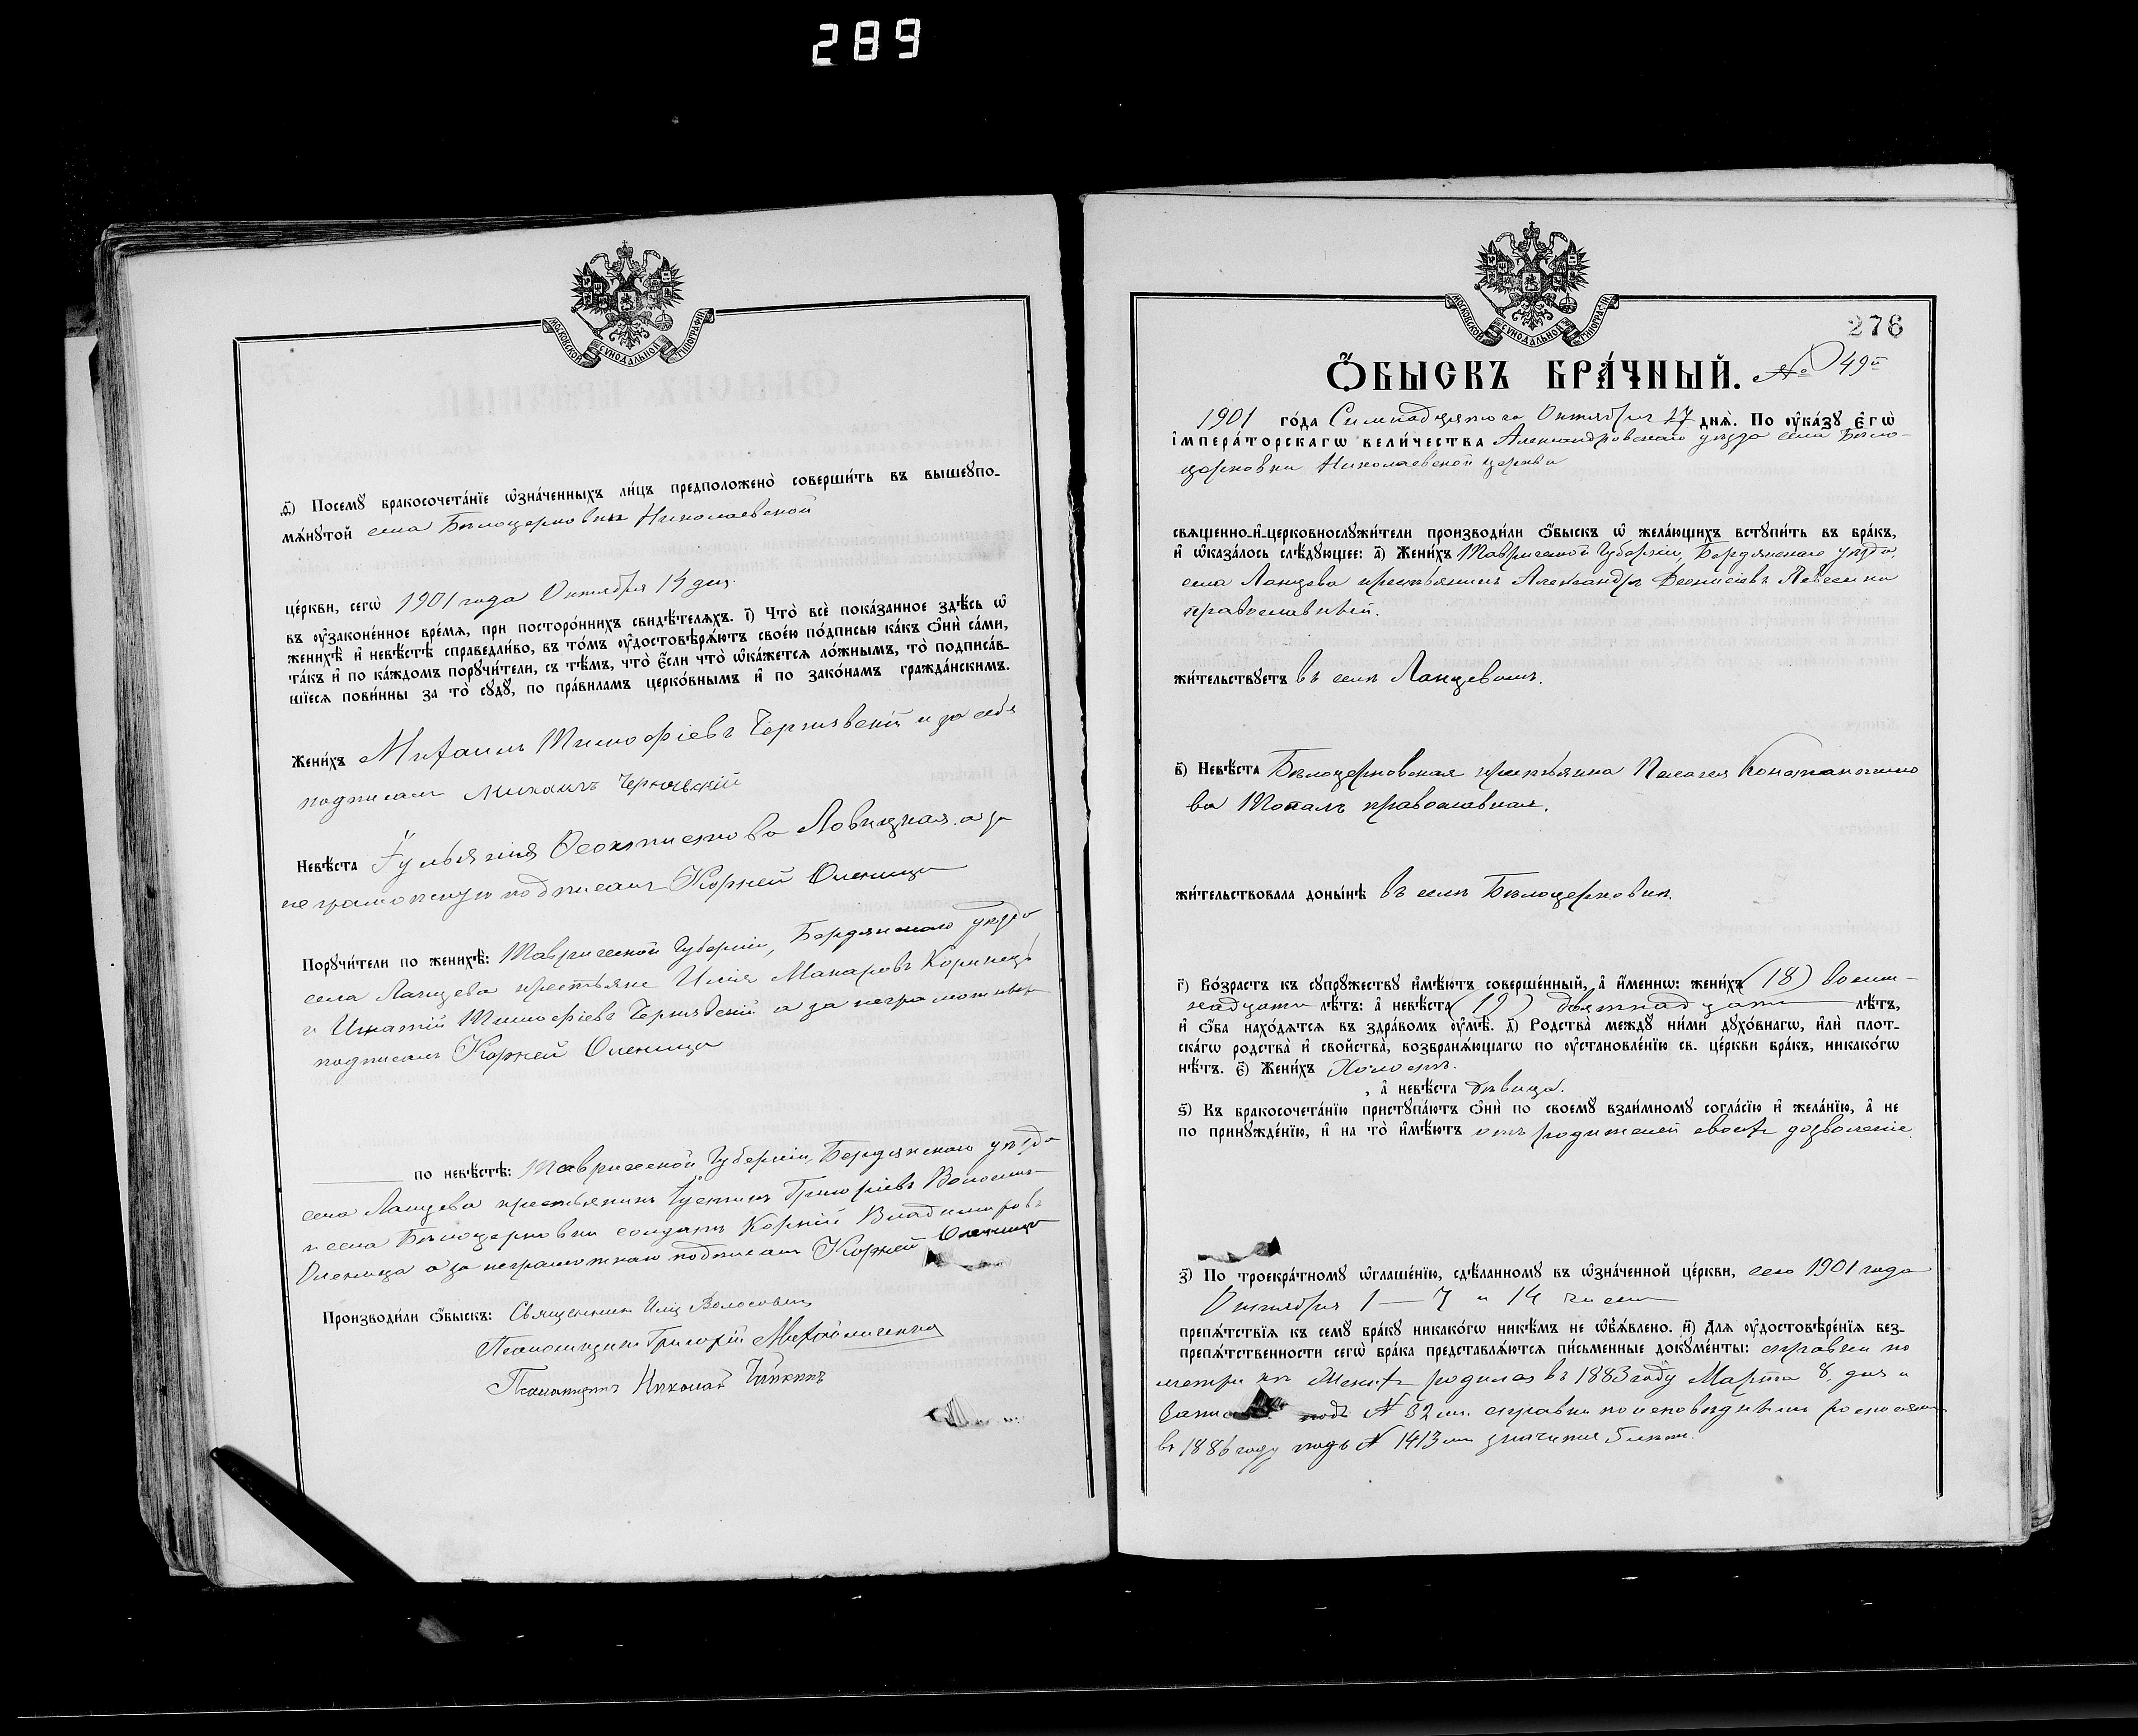 289
МОСКОВСКОЙ СѴНОДАЛЬНОЙ ТИПОГРАФІИ
ѳ҃) Посемꙋ̀ бракосочета́нїе ѡ҆зна́ченныхъ ли́цъ предположено̀ соверши́ть въ вышеꙋпо-
мѧ́нꙋтой села Бѣлоцерковки Николаевской
це́ркви, сегѡ̀ 1901 года Октября 14 дня.
въ ᲂу҆зако́ненное вре́мѧ, при посторо́ннихъ свидѣ́телѧхъ. і҃) Что̀ всѐ пока́занное здѣ́сь ѡ҆
женихѣ̀ и҆ невѣ́стѣ справедли́во, въ то́мъ ᲂу҆достовѣрѧ́ютъ свое́ю по́дписью ка́къ ѻ҆нѝ са́ми,
та́къ и҆ по ка́ждомъ порꙋчи́тели, съ тѣ́мъ, что̀ є҆́сли что̀ ѡ҆ка́жетсѧ ло́жнымъ, то̀ подписа́в-
шїесѧ пови́нны за то̀ сꙋдꙋ̀, по пра́виламъ церко́внымъ и҆ по зако́намъ гражда́нскимъ.
Жени́хъ Михаилъ Тимофіевъ Чернявскій и за себя
подписалъ Михаилъ Чернявскій
Невѣ́ста Іульянія Ловицкая а за
неграмотную подписалъ Корней Оленица
Порꙋчи́тели по женихѣ̀: Таврической Губерніи, Бердянскаго уѣзда
села Ланцева крестьяне Илія Макаровъ Коринецъ
и Игнатій Тимофіевъ Чернявскій а за неграмотныхъ
подписалъ Корней Оленица
по невѣ́стѣ: Таврической Губерніи, Бердянскаго уѣзда
села Ланцева крестьянинъ Іустинъ Григоріевъ
и села Бѣлоцерковки солдатъ Корній Владимировъ
Оленица а за неграмотнаго подписалъ Корней Оленица
Производи́ли ѻ҆́быскъ: Священникъ Илія
Псаломщикъ Григорій
Псаломщикъ Николай
МОСКОВСКОЙ СѴНОДАЛЬНОЙ ТИПОГРАФІИ
276
Ѻ҆́БЫСКЪ БРА́ЧНЫЙ. № 49й
1901 го́да Семнадцятого Октября 17 днѧ̀. По ᲂу҆ка́зꙋ є҆гѡ̀
і҆мпера́торскагѡ вели́чества Александровскаго уѣзда села Бѣло-
церковки Николаевской церкви
свѧщенно-и҆-церковнослꙋжи́тели производи́ли ѻ҆́быскъ ѡ҆ жела́ющихъ встꙋпи́ть въ бра́къ,
и҆ ѡ҆каза́лось слѣ́дꙋющее: а҃) Жени́хъ Таврической Губерніи, Бердянскаго уѣзда,
села Ланцева крестьянинъ Александръ Діонисіевъ
православный.
жи́тельствꙋетъ въ селѣ Ланцевомъ.
в҃) Невѣ́ста Бѣлоцерковская крестьянка Пелагея Константино
ва Топалъ православная.
жи́тельствовала доны́нѣ въ селѣ Бѣлоцерковки.
г҃) Во́зрастъ къ сꙋпрꙋ́жествꙋ и҆мѣ́ютъ соверше́нный, а҆ и҆́меннѡ: жени́хъ (18) восем-
надцати лѣ́тъ: а҆ невѣ́ста (19) девятнадцати лѣ́тъ,
и҆ ѻ҆́ба нахо́дѧтсѧ въ здра́вомъ ᲂу҆мѣ̀. д҃) Родства̀ междꙋ̀ ни́ми дꙋхо́внагѡ, и҆лѝ пло́т-
скагѡ родства̀ и҆ сво́йства̀, возбранѧ́ющагѡ по ᲂу҆становле́нїю св. це́ркви бра́къ, никако́гѡ
нѣ́тъ. є҃) Жени́хъ Холостъ.
, а҆ невѣ́ста дѣвица.
ѕ҃) Къ бракосочета́нїю пристꙋпа́ютъ ѻ҆нѝ по своемꙋ̀ взаи́мномꙋ согла́сїю и҆ жела́нїю, а҆ не
по принꙋжде́нїю, и҆ на то̀ и҆мѣ́ютъ отъ родителей своихъ дозволеніе.
з҃) По троекра́тномꙋ ѡ҆глаше́нїю, сдѣ́ланномꙋ въ ѡ҆зна́ченной це́ркви, сего 1901 года
Октября 1 — 7 и 14 чиселъ
препѧ́тствїѧ къ семꙋ̀ бра́кꙋ никако́гѡ никѣ́мъ не ѡ҆б̾ѧ́влено. и҃) Длѧ ᲂу҆достовѣре́нїѧ без-
препѧ́тственности сегѡ̀ бра́ка представлѧ́ютсѧ пи́сьменные докꙋме́нты: справки по
метрикѣ Женихъ родился въ 1883 году Марта 8, дня и
подъ № 32мъ. справки по исповѣднымъ росписямъ
въ 1886 году подъ № 1413мъ значится 5 лѣтъ.